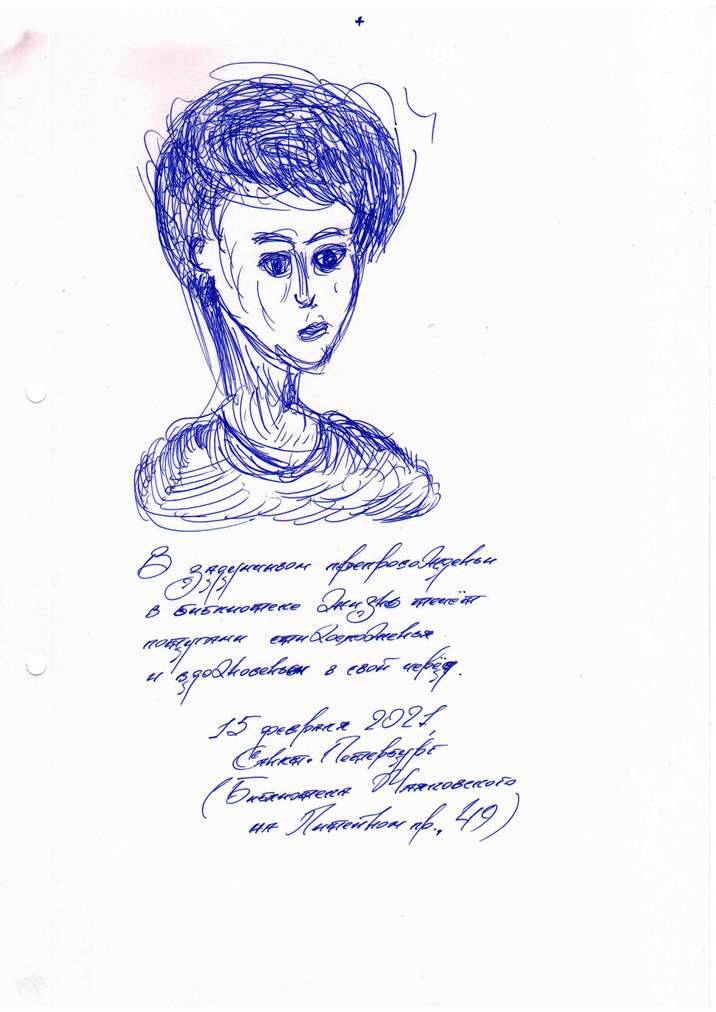 В задумчивом препровожденьи
в библиотеке жизнь течёт
потугами стихосложенья
и вдохновеньем в свой черёд.
15 февраля 2021,
Санкт-Петербург
(Библиотека Маяковского
на Литейном пр., 49)